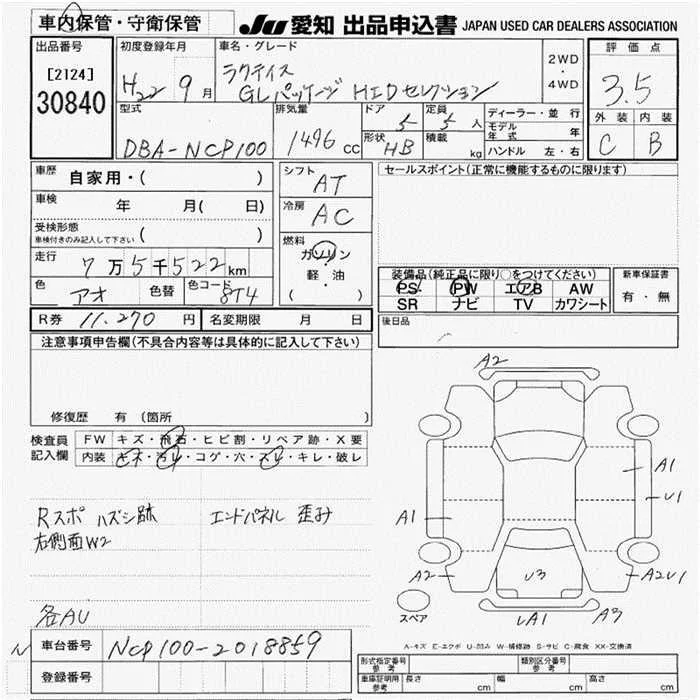 車内保管・守衛保管
JU 愛知 出品申込書 JAPAN USED CAR DEALERS ASSOCIATION
出品番号
[2124]
30840
初度登録年月
H22 9月
車名・グレード
ラクティス
GLパッケージ HIDセレクション
2WD
・
4WD
評価点
3.5
外装 内装
C B
型式
DBA-NCP100
排気量
1496 cc
ドア 5
形状 HB
定員 5 人
積載 kg
ディーラー・並行
モデル年式 年
ハンドル 左・右
車歴 自家用・( )
車検 年 月( 日)
受検形態
車検付きのみ記入して下さい ( )
走行
7万5千522km
色 アオ 色替 色コード 8T4
シフト AT
冷房 AC
燃料
ガソリン
軽・油
( )
セールスポイント(正常に機能するものに限ります)
装備品(純正品に限り○をつけてください)
PS PW エアB AW
SR ナビ TV カワシート
新車保証書
有・無
R券 11.270 円 名変期限 月 日
後日品
注意事項申告欄(不具合内容等は具体的に記入して下さい)
修復歴 有 (箇所
検査員
記入欄
FW キズ・飛石・ヒビ割・リペア跡・X要
内装 キズ・汚レ・コゲ・穴・スレ・キレ・破レ
Rスポ ハズシ跡 エンドパネル 歪み
右側面W2
各AU
A2
A1
U1
A1
A2
U3
A2U1
LA1
A3
スペア
A-キズ E-エクボ U-凹み W-補修跡 S-サビ C-腐食 XX-交換済
N
車台番号 NCP100-2018859
登録番号
形式指定番号
参考
類別区分番号
参考
車庫証明用
参考
長さ cm 幅 cm 高さ cm